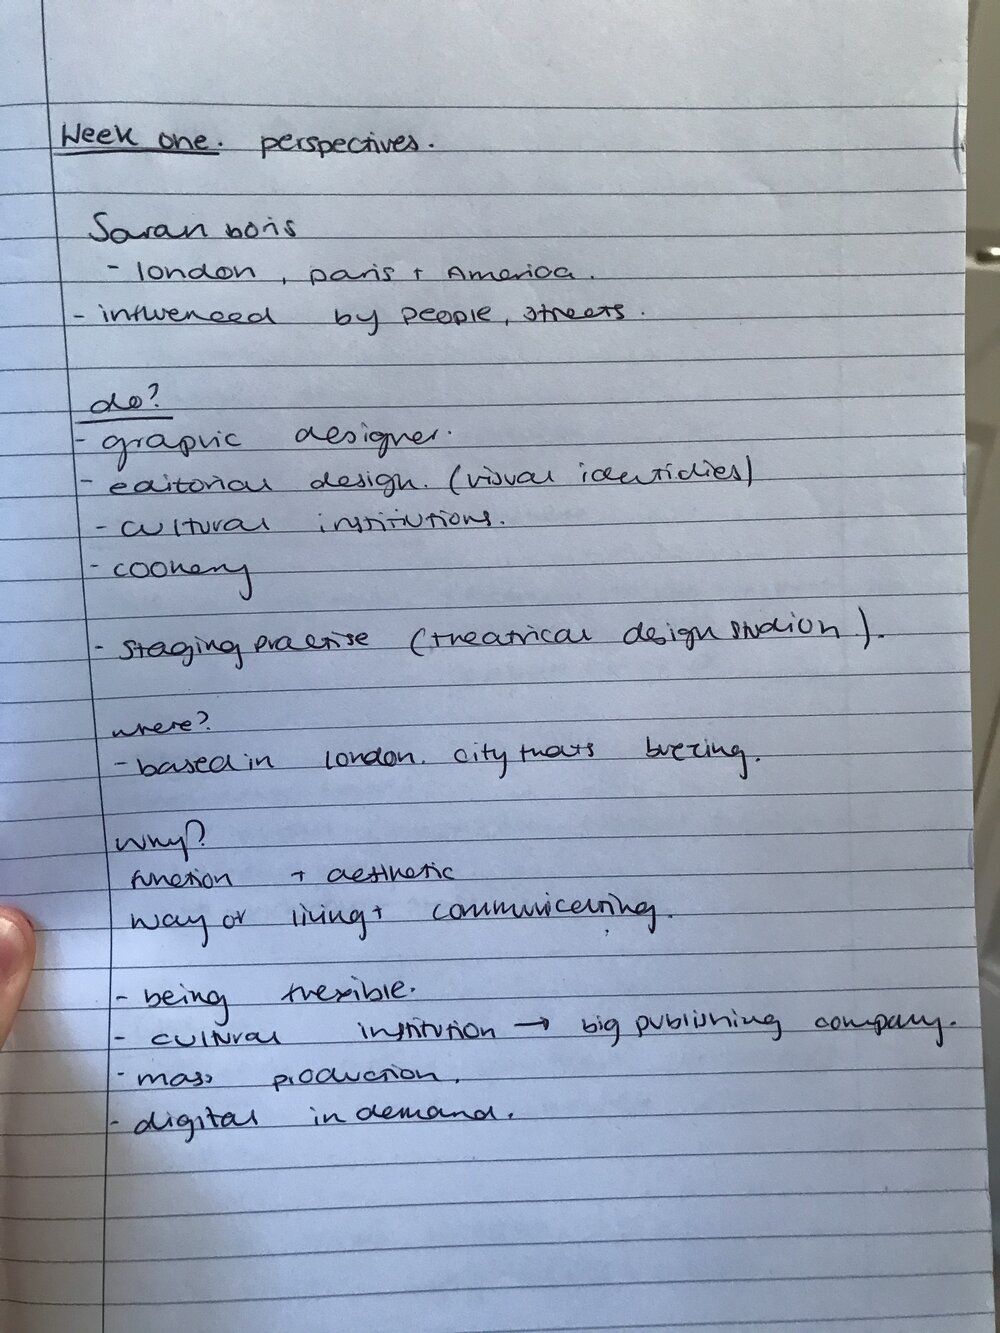 Week one. perspectives.
Saran boris
- london, paris + America.
- influenced by people, streets.
do?
- graphic designer.
- editorial design. (visual identidies)
- cultural institutions.
- cookery
- staging practise (theatrical design studion).
where?
- based in london. city thats buzzing.
Why?
function + aesthetic
way of living + communicating.
- being flexible.
- cultural institution → big publishing company.
- mass production.
- digital in demand.